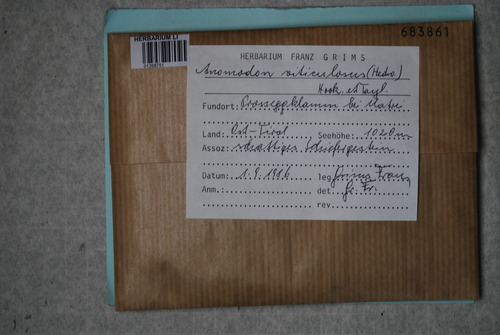 683861
HERBARIUM LI
HERBARIUM FRANZ GRIMS
Anomodon viticulosus (Hedw.)
Hook. et Tayl.
Fundort: Prosseggklamm bei Matrei
Land: Ost-Tirol Seehöhe: 1020m
Assoz: schattiges Schiefergestein
Datum: 1.9.1986 leg. Grims Franz
Anm. det. Gr. Fr.
rev.